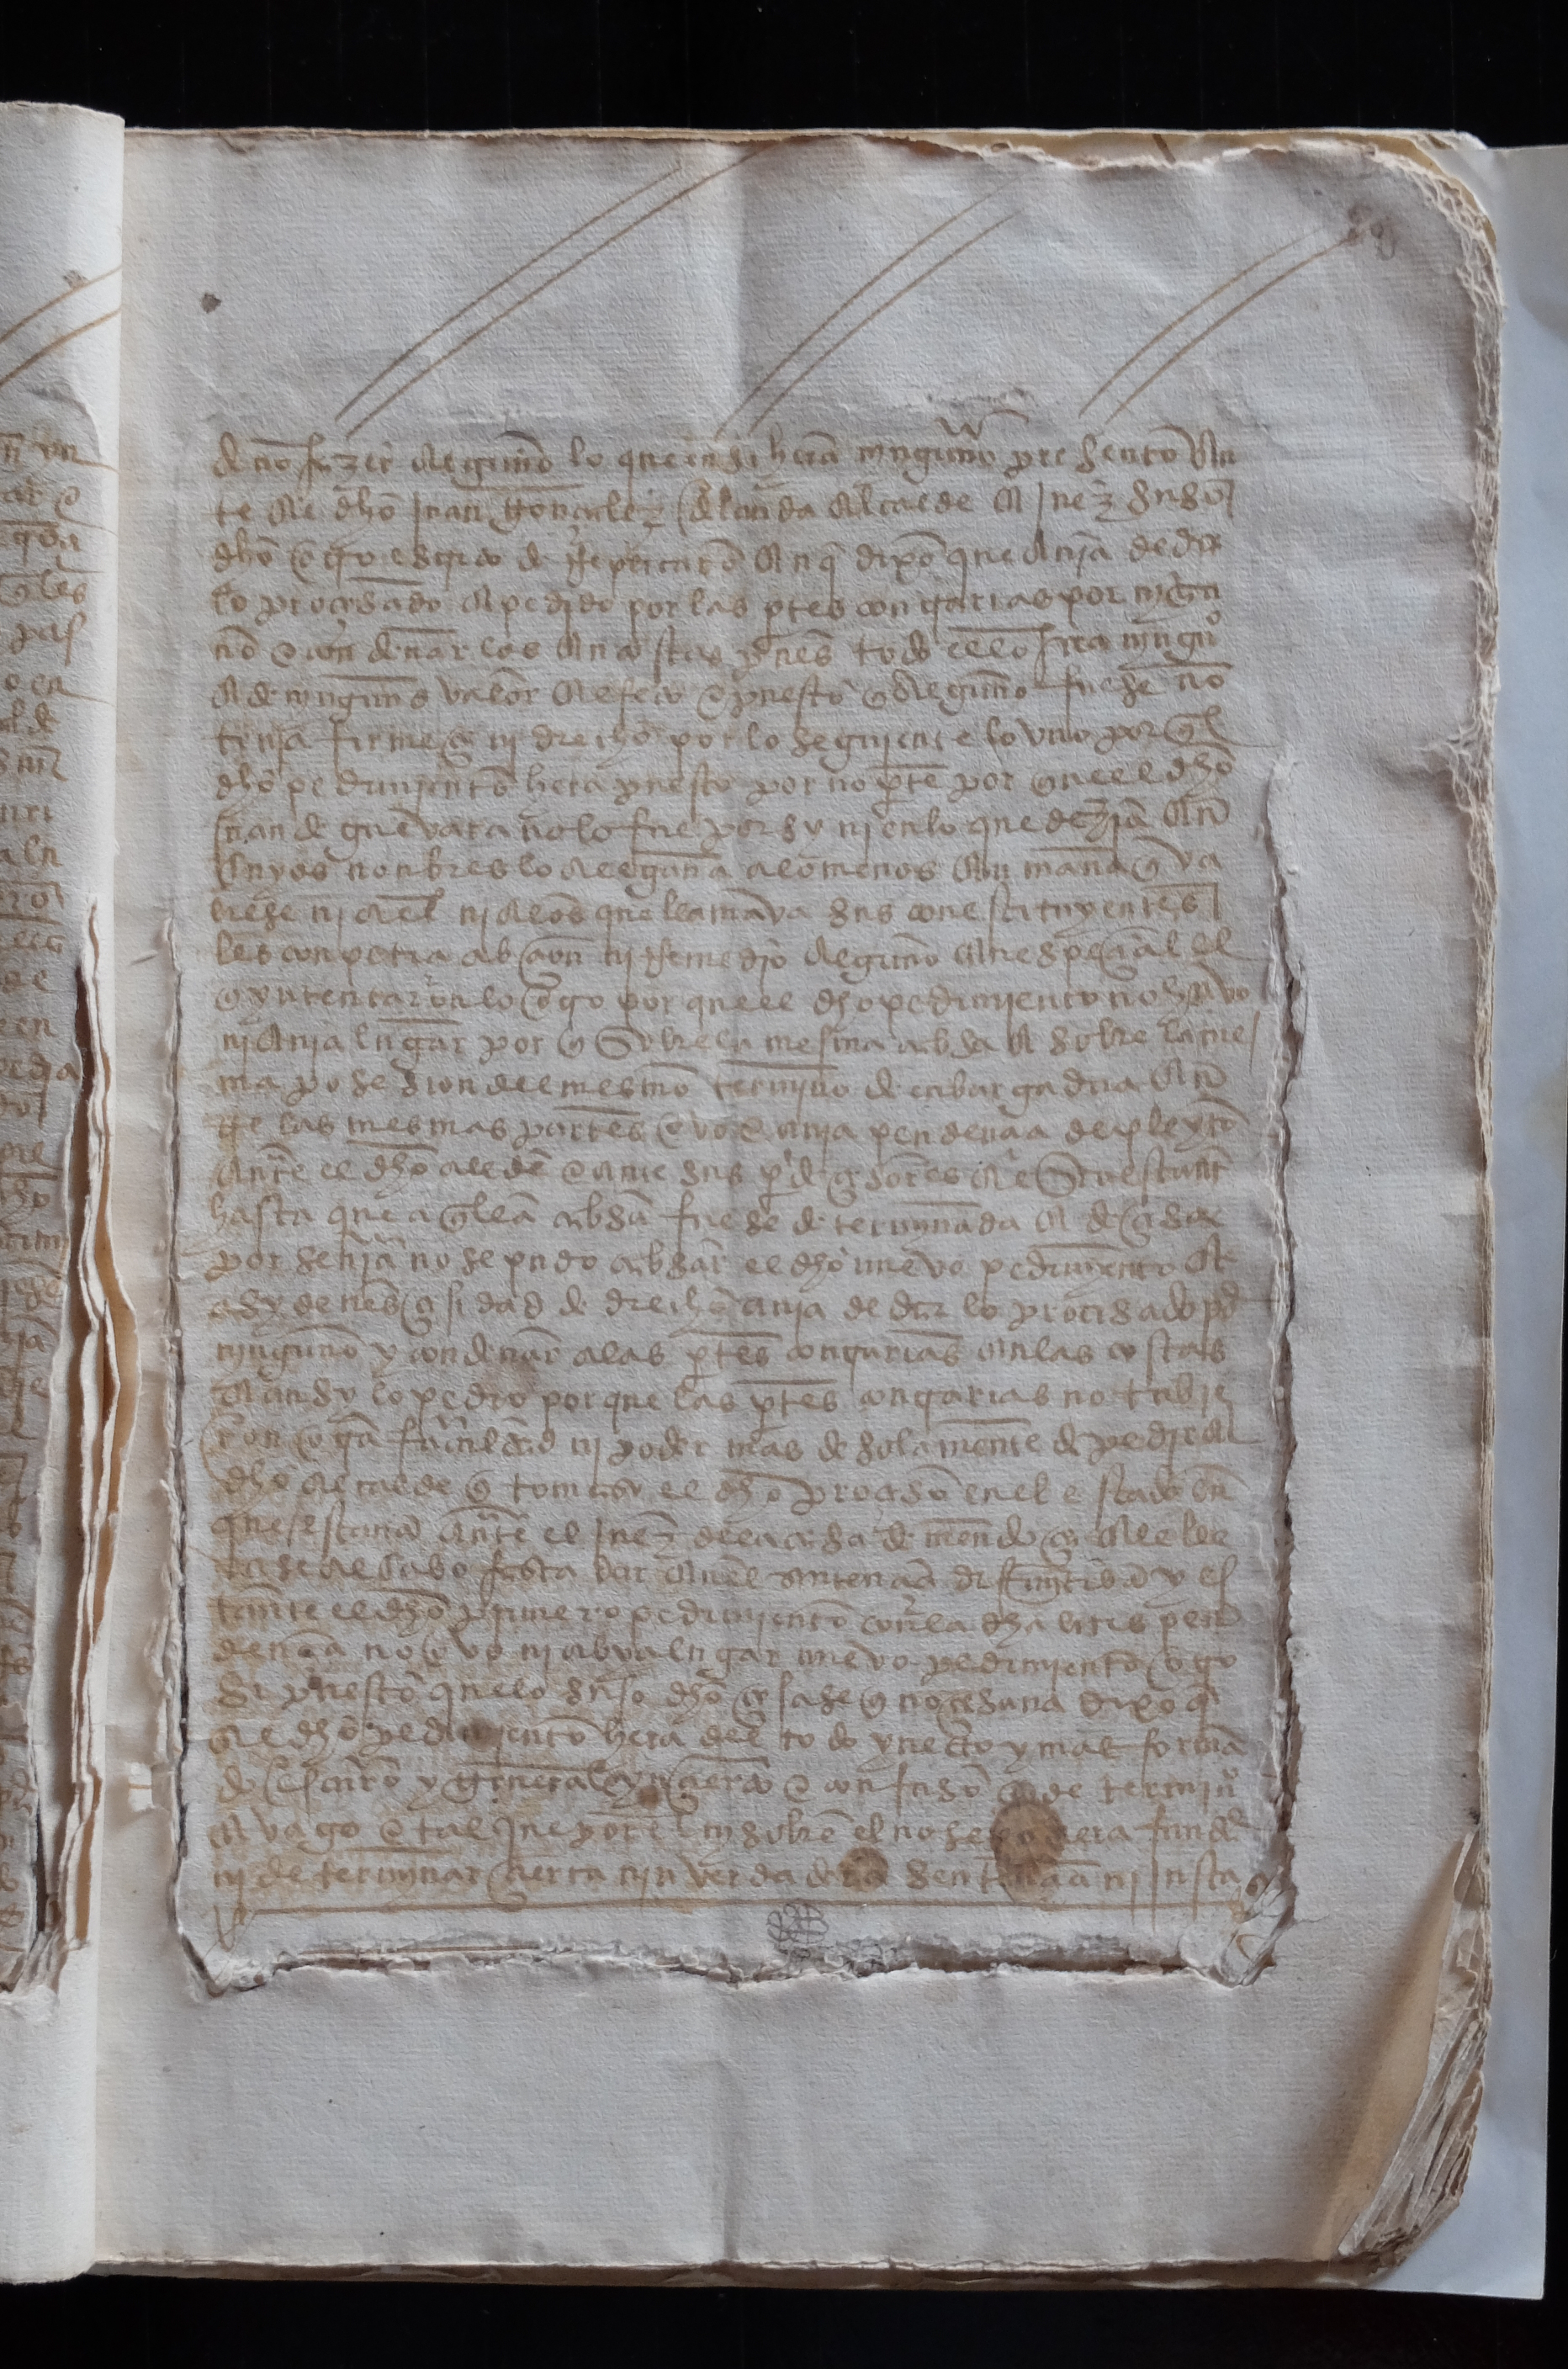 de no fazer alguno lo que en si hera ninguno presento an
te el dho juan gonçalez de landa alcalde e juez suso
dho otro escripto de replicaçion en q̃ dixo que avia de dar
lo proçesado e pedido por las p̃tes contrarias por ningu
no e condenar los en costas pues todo ello hera ningũo
e de ningund valor e efeto e puesto q̃ alguno fuese no
tenja firmeça nj derecho por lo seguiente lo vno por q̃l
dho pedimjento hera puesto por no p̃te por quel dho
juan de guevara no lo fue por sy nj en lo que dezia en
cuyos nonbres lo alegava a lo menos en manera q̃ va
liese nj a el nj a los que llamava sus constituyentes
les conpetia abçion nj remedio alguno en espeçial el
q̃ yntentaron lo otro por que el dho pedimiento no hovo
nj avia lugar por q̃ sobre la mesma cabsa e sobre la mes
ma posesion del mesmo termino de enbargadua en
tre las mesmas partes ovo e avia pendençia de pleyto
ante el dho allde e ante sus p̃deçesores el qual estant
hasta que aq̃lla cabsa fuese determinada e deçisa
por sentençia no se pudo cabsar el dho nuevo pedimyento e
asy de nesçesidad de derecho avia de dar lo proçesado por
ninguno y condenar a las p̃tes contrarias en las costas
e ansy lo pedio porque las p̃tes contrarias no tubie
ron otra facultad nj poder mas de solamente de pedir al
dho alcalde q̃ tomase el dho proçeso en el estado en
que estava ante el juez de la casa de mendoça e le lle
vase al cabo fasta dar en el sentençia difinitiba y es
tante el dho primero pedimiento con la dha litis pen
dençia no ovo nj abya lugar nuevo pedimiento otro
si puesto que lo suso dho çesase q̃ no çesava dixo q̃
el dho pedimjento hera del todo ynecto y mal forma
do escuro y general ynçierto e confuso e de termino
e vago e tal que por el ny sobre el no se podiera fundar
nj determinar çierta nin verdadera sentençia nj justa